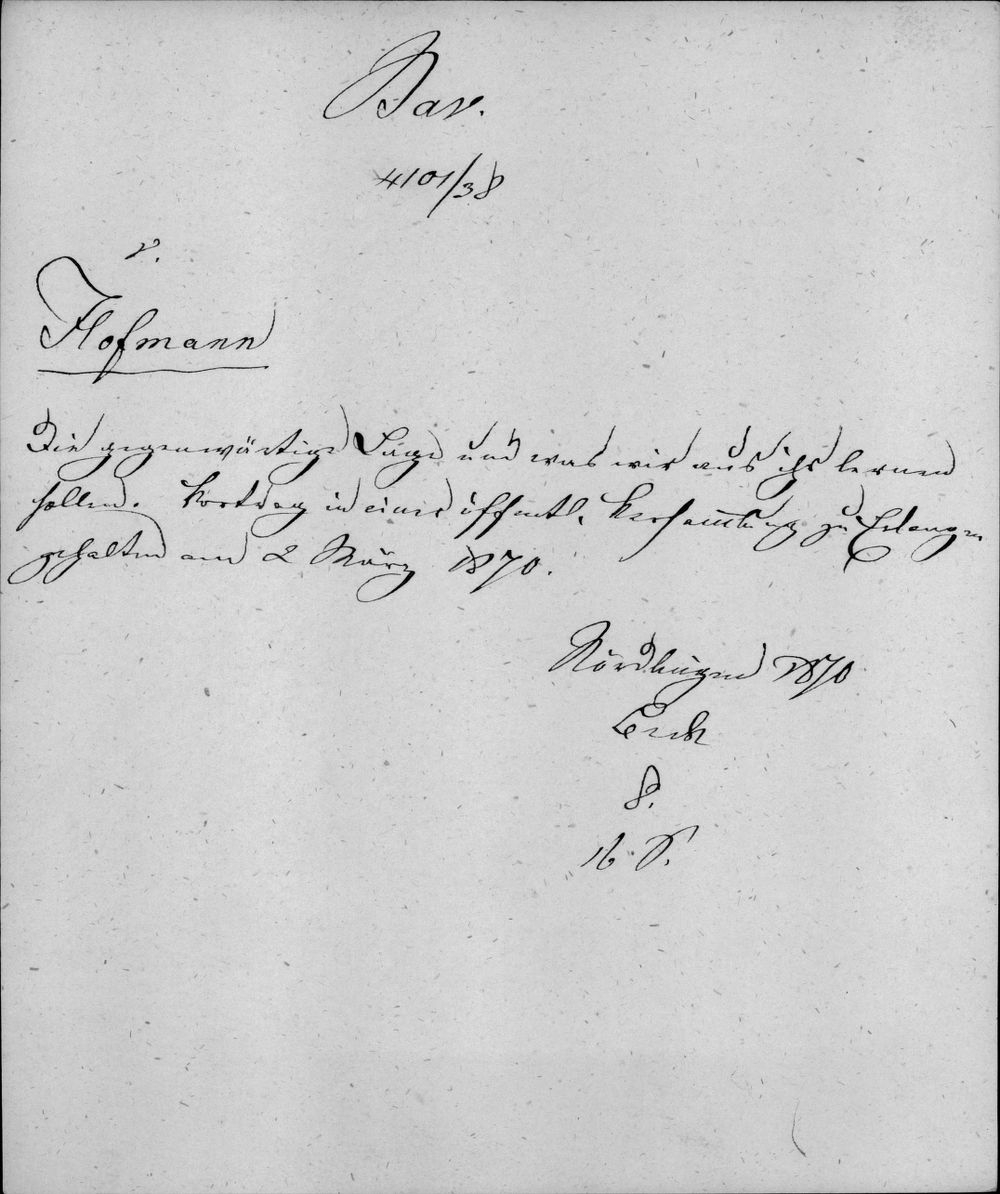 Bav.
4101/38
v.
Hofmann
Die gegenwärtige Lage und was wir aus ihr lernen
sollen. Vortrag in einer öffentl. Versammlung zu Erlangen
gehalten am 2 März 1870.
Nördlingen 1870
Beck
8.
16 S.